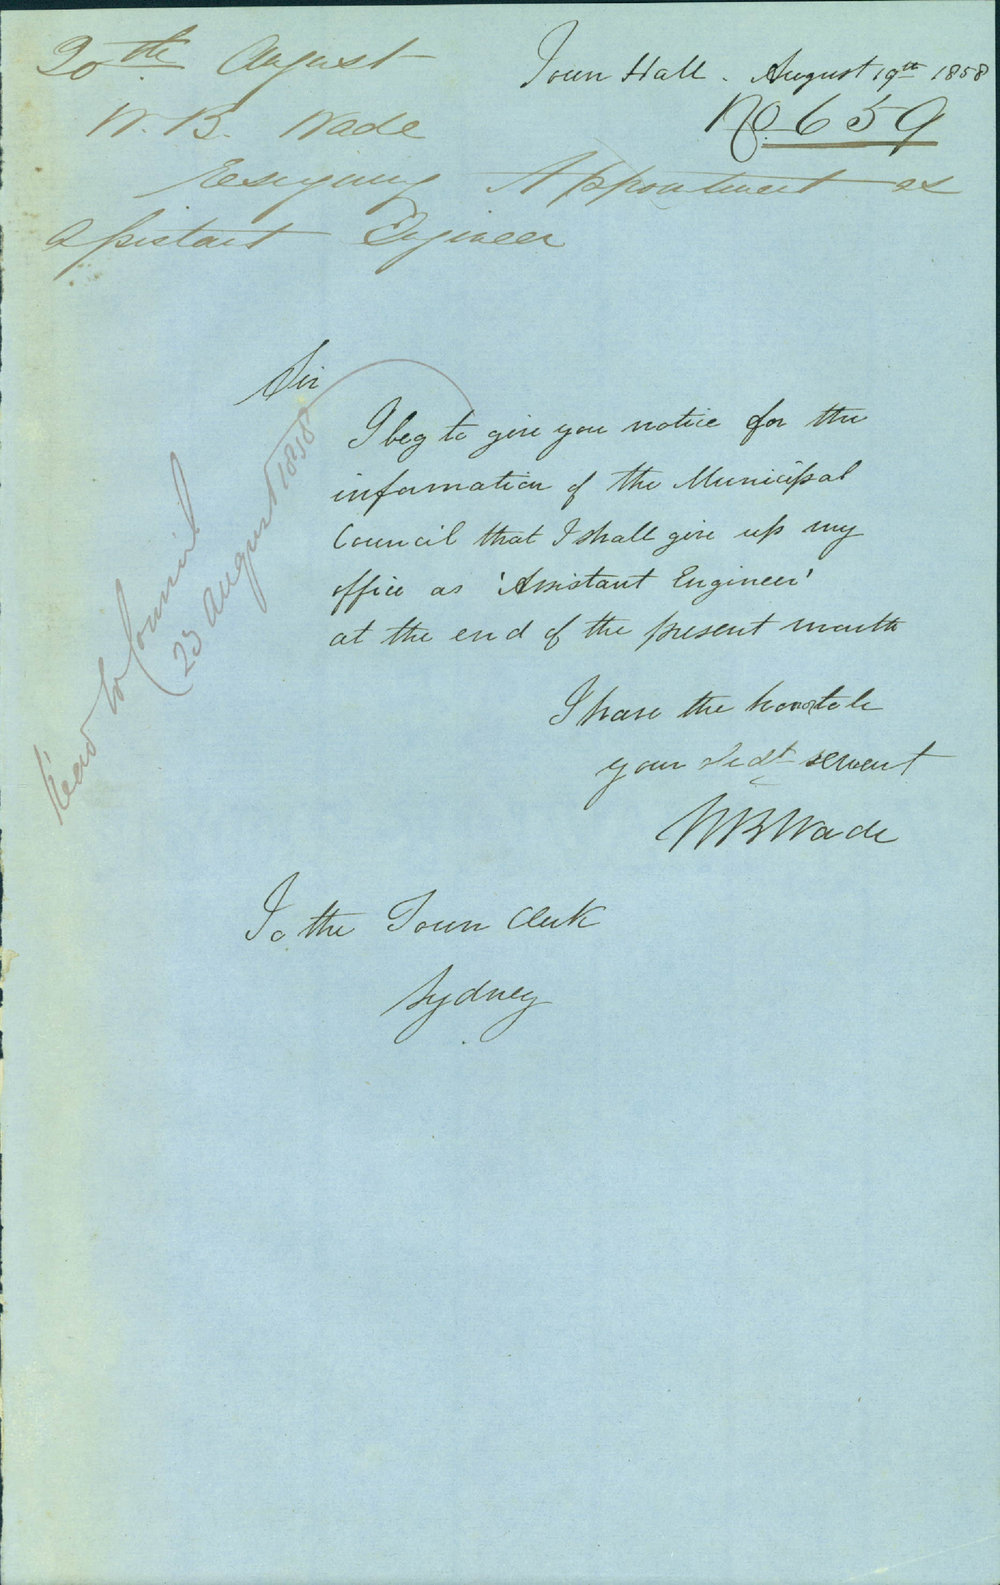 20th August
W. B. Wade
Resigning Appointment as
Assistant Engineer
Town Hall. August 19th 1858
No. 659
Sir
I beg to give you notice for the
information of the Municipal
Council that I shall give up my
office as 'Assistant Engineer'
at the end of the present month
I have the honor to be
your obedt servant
WBWade
To the Town Clerk
Sydney
Read to Council
23 August 1858